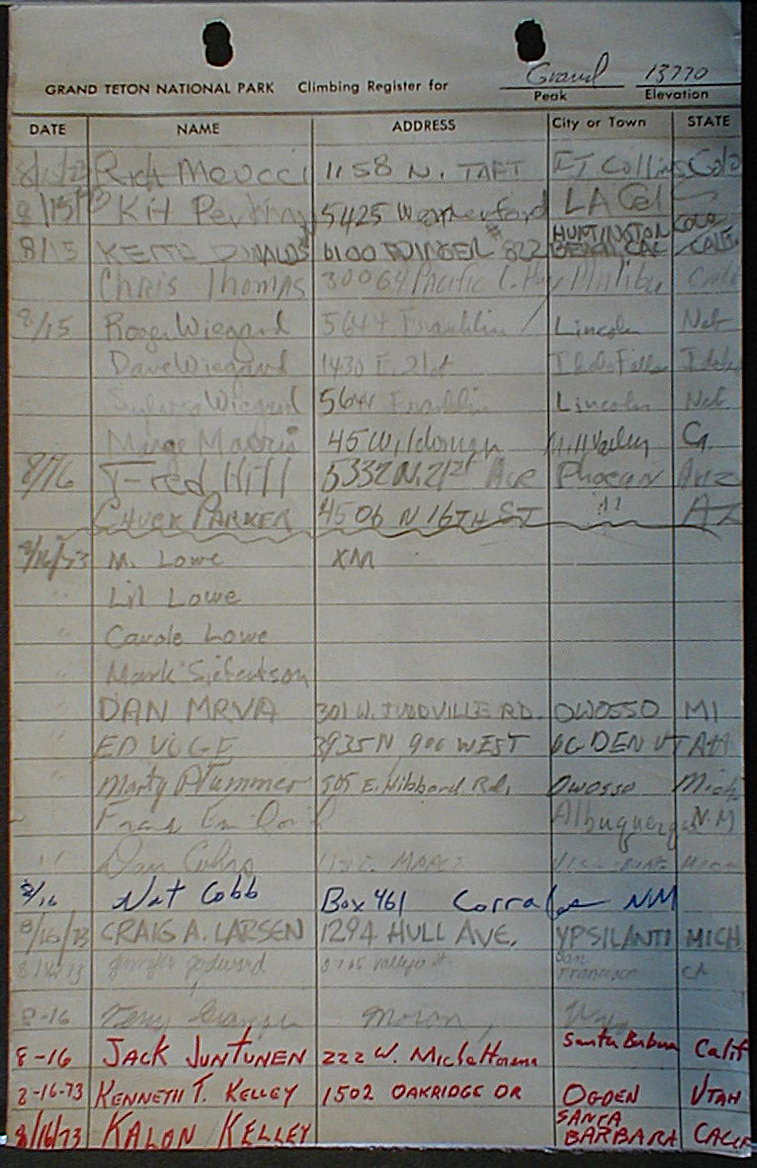 Grand 13770
GRAND TETON NATIONAL PARK Climbing Register for
Peak Elevation
DATE NAME ADDRESS City or Town STATE
Rich Meucci 1158 N. TAFT FT Collins, Colo
8/15/73 Kit 5425 Weatherford LA Cal
8/15 KEITH 6100 EDINGER #822 HUNTINGTON BEACH, CAL CALIF.
Chris Thomas 30064 Pacific C. Hwy Malibu Cal
8/15 Roger Wiegand 5644 Franklin Lincoln Neb
Dave Wiegand 1430 E. 21st Idaho Falls Idaho
Wiegand 5644 Franklin Lincoln Neb.
45 Mill Valley Ca
8/16 Fred Hill 5332 N. 21st Ave Phoenix Ariz
CHUCK PARKER 4506 N 16TH ST " AZ
8/16/73 M. Lowe XM
" Lil Lowe
" Carole Lowe
" Mark
" DAN MRVA 301 W. JUDDVILLE RD. OWOSSO MI
" ED 3935 N 900 WEST OGDEN UTAH
" Marty Plummer 505 E. Hibbard Rd. Owosso Mich.
Albuquerque N.M
"
8/16 Nat Cobb Box 461 Corrales NM
8/16/73 CRAIG A. LARSEN 1294 HULL AVE. YPSILANTI MICH
8/16/73 San Francisco CA
8-16 Moran,
8-16 JACK JUNTUNEN 222 W. Micheltorena Santa Barbara Calif
8-16-73 KENNETH T. KELLEY 1502 OAKRIDGE DR OGDEN UTAH
8/16/73 KALON KELLEY SANTA BARBARA CALIF